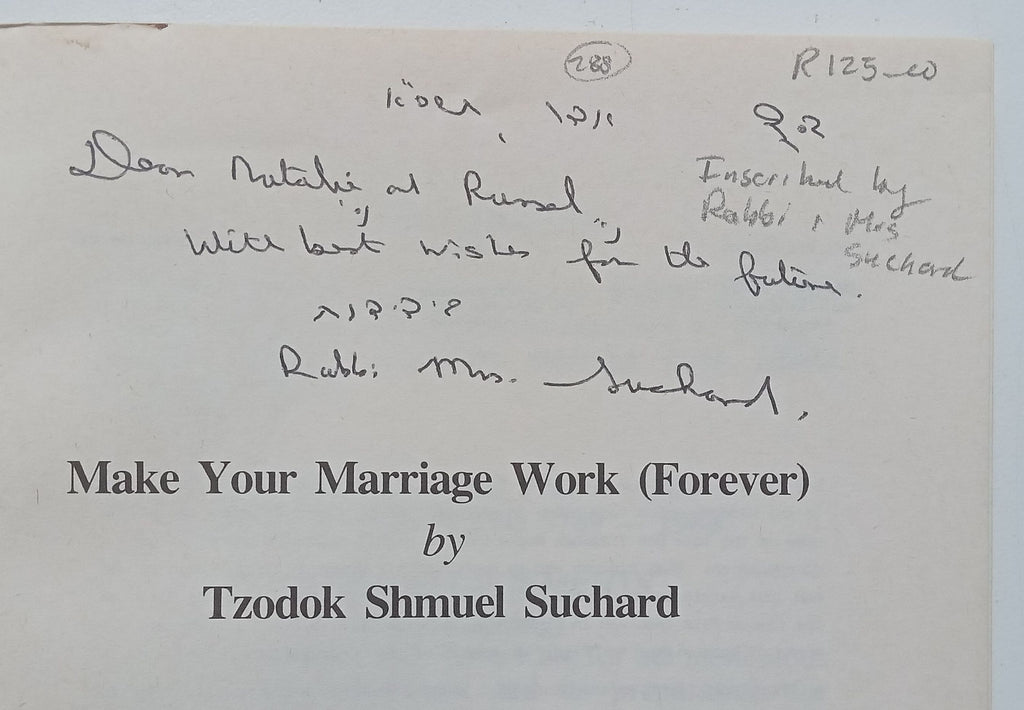 288
R125-00
אדר תשס"א
בס"ד
Inscribed by
Rabbi & Mrs
Suchard
Dear Natalie and Russel,
With best wishes for the future.
בידידות
Rabbi Mrs. Suchard,
Make Your Marriage Work (Forever)
by
Tzodok Shmuel Suchard